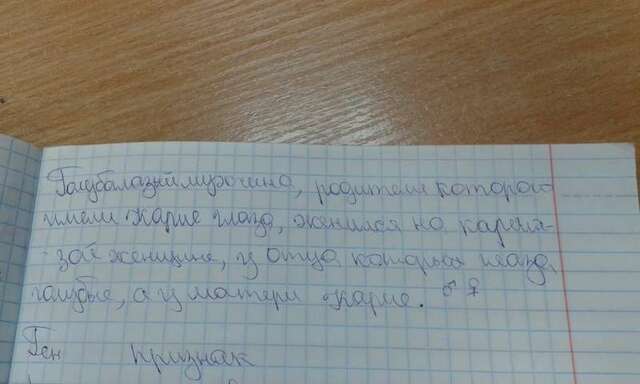 Голубоглазый мужчина, родители которого
имели карие глаза, женился на карегла-
зой женщине, у отца которых глаза
голубые, а у матери - карие. ♂ ♀
Ген признак